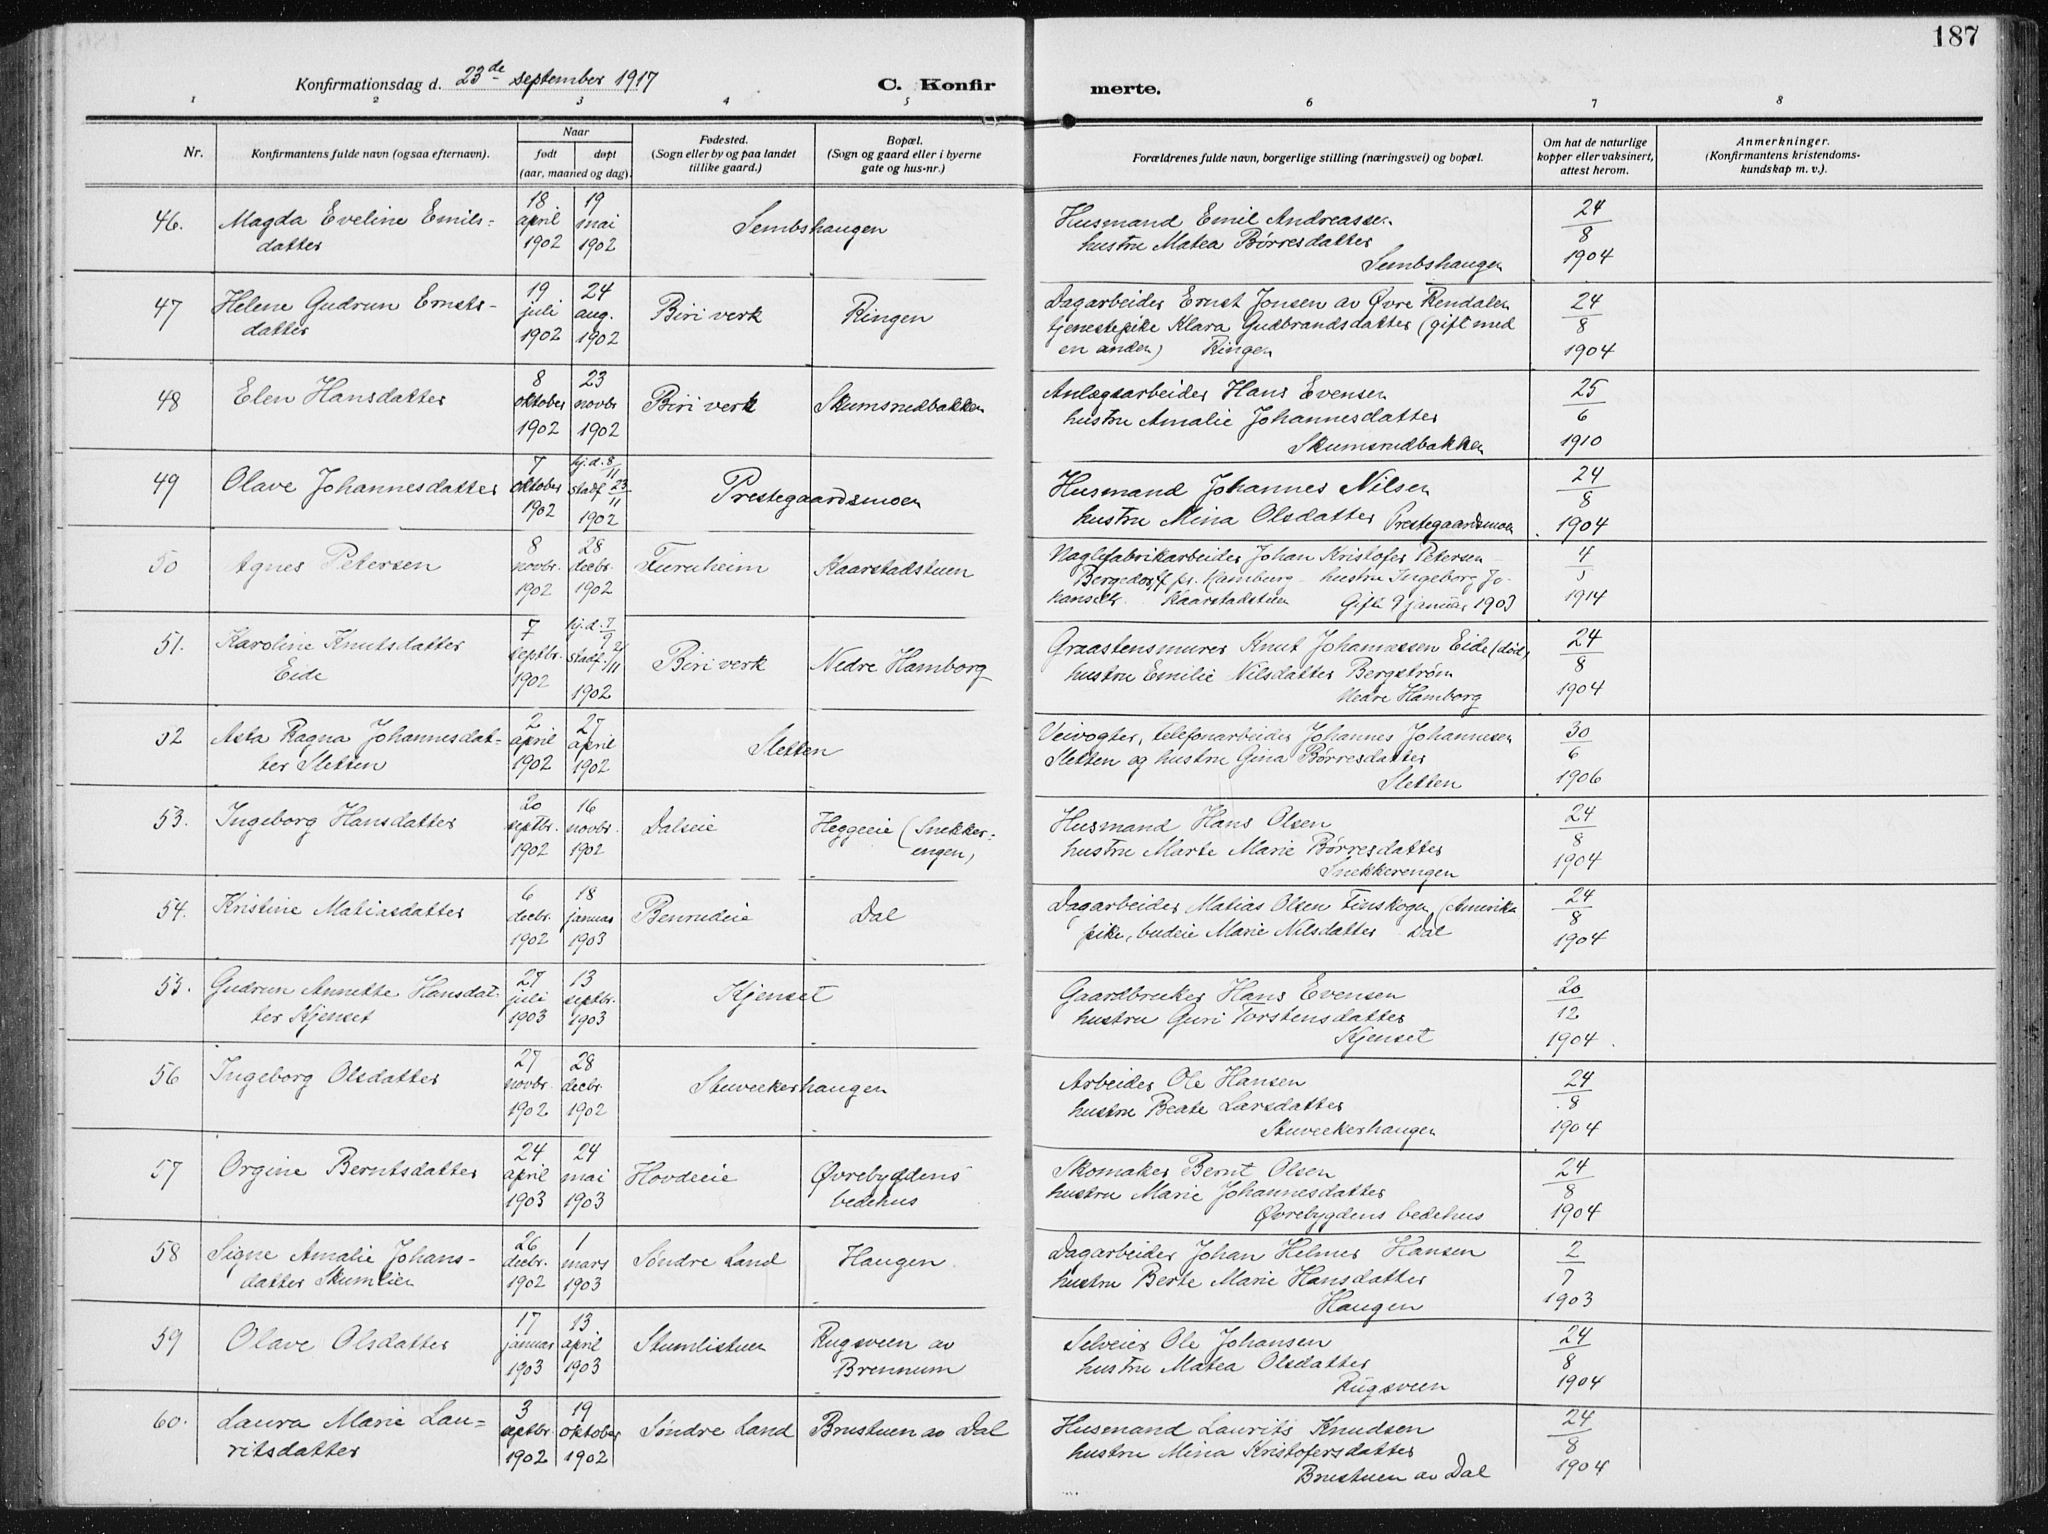 187
Konfirmationsdag d. 23de september 1917
C. Konfirmerte.
1 2 3 4 5 6 7 8
Nr.
Konfirmantens fulde navn (ogsaa efternavn).
Naar
født døpt
(aar, maaned og dag).
Fødested.
(Sogn eller by og paa landet
tillike gaard.)
Bopæl.
(Sogn og gaard eller i byerne
gate og hus-nr.)
Forældrenes fulde navn, borgerlige stilling (næringsvei) og bopæl.
Om hat de naturlige
kopper eller vaksinert,
attest herom.
Anmerkninger.
(Konfirmantens kristendoms-
kundskap m. v.).
46. Magda Eveline Emils-
datter
18 april 1902
19 mai 1902
Sembshaugen
Husmand Emil Andreassen
hustru Matea Børresdatter
Sembshaugen
24/8 1904
47 Helene Gudrun Ernsts-
datter
19 juli 1902
24 aug. 1902
Biri verk
Ringen
Dagarbeider Ernst Jonsen av Øvre Rendalen
tjenestepike Klara Gudbrandsdatter (gift med
en anden) Ringen
24/8 1904
48 Elen Hansdatter
8 oktober 1902
23 novbr 1902
Biri verk
Skumsrudbakken
Anlægsarbeider Hans Evensen
hustru Amalie Johannesdatter
Skumsrudbakken
25/6 1910
49 Olave Johannesdatter
7 oktober 1902
hj.d. 8/11 stadf 23/11 1902
Prestegaardsmoen
Husmand Johannes Nilsen
hustru Mina Olsdatter Prestegaardsmoen
24/8 1904
50 Agnes Petersen
8 novbr. 1902
28 decbr. 1902
Furuheim
Kaarstadstuen
Naglefabrikarbeider Johan Kristofer Petersen
Bergedorff pr. Hamburg - hustru Ingeborg Jo-
hansdtr. Kaarstadstuen Gift 9 januar 1903
4/5 1914
51. Karoline Knutsdatter
Eide
7 septbr. 1902
hj.d. 7/9 stadf. 2/11 1902
Biri verk
Nedre Hamborg
Graastensmurer Knut Johannessen Eide (død)
hustru Emilie Nilsdatter Bergstrøm
Nedre Hamborg
24/8 1904
52 Asta Ragna Johannesdat-
ter Sletten
2 april 1902
27 april 1902
Sletten
Veivogter, telefonarbeider Johannes Johannesen
Sletten og hustru Gina Børresdatter
Sletten
30/6 1906
53. Ingeborg Hansdatter
20 septbr. 1902
16 novbr. 1902
Dalseie
Heggeeie (Snekker-
engen)
Husmand Hans Olsen
hustru Marte Marie Børresdatter
Snekkerengen
24/8 1904
54. Kristine Matiasdatter
6 decbr. 1902
18 januar 1903
Benrudeie
Dal
Dagarbeider Matias Olsen Finskogen (Amerika
pike, budeie Marie Nilsdatter Dal
24/8 1904
55. Gudrun Annette Hansdat-
ter Kjenset
27 juli 1903
13 septbr. 1903
Kjenset
Gaardbruker Hans Evensen
hustru Guri Torstensdatter
Kjenset
20/12 1904.
56 Ingeborg Olsdatter
27 novbr. 1902
28 decbr. 1902
Stuveekerhaugen
Arbeider Ole Hansen
hustru Beate Larsdatter
Stuveekerhaugen
24/8 1904
57 Orgine Berntsdatter
24 april 1903
24 mai 1903
Hovdeeie
Øvrebygdens
bedehus
Skomaker Bernt Olsen
hustru Marie Johannesdatter
Øvrebygdens bedehus
24/8 1904
58 Signe Amalie Johans-
datter Skumlien
26 decbr. 1902
1 mars 1903
Søndre Land
Haugen
Dagarbeider Johan Helmer Hansen
hustru Berte Marie Hansdatter
Haugen
2/7 1903
59 Olave Olsdatter
17 januar 1903
13 april 1903
Skumlistuen
Rugsveen av
Brennum
Selveier Ole Johansen
hustru Matea Olsdatter
Rugsveen
24/8 1904
60. Laura Marie Lau-
ritsdatter
3 septbr. 1902
19 oktober 1902
Søndre Land
Brustuen av Dal
Husmand Laurits Knudsen
hustru Mina Kristofersdatter
Brustuen av Dal
24/8 1904